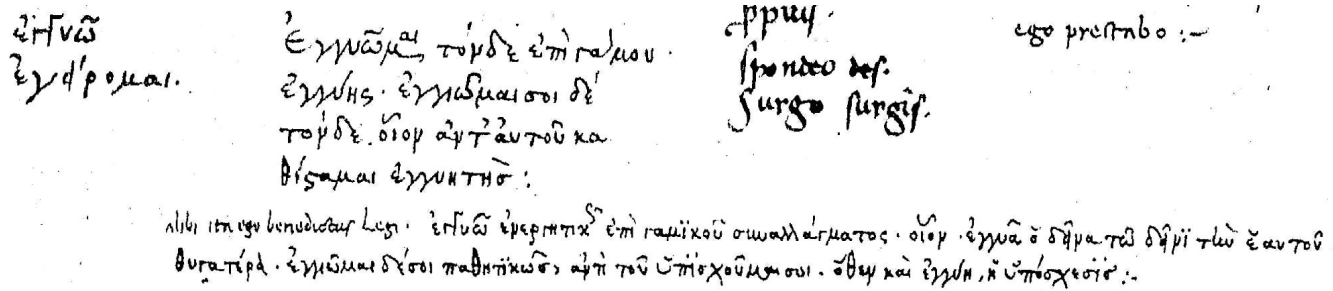 ἐγγυῶ
ἐγείρομαι.
Ἐγγυῶμαι τόνδε ἐπὶ γάμου.
ἐγγύης. ἐγγυῶμαι σοι δέ
τόνδε. οἷον ἀντ' αὐτοῦ κα
θίζαμαι ἐγγυητὴς :
ppuſ.
ſpondeo des.
Surgo ſurgiſ.
ego preſtabo :-
Alibi ita ego benedictus Legi. ἐγγυῶ ἐνεργητικῶς ἐπὶ γαμϊκοῦ συναλλάγματος. οἷον. ἐγγυᾶ ὁ δῆνα τῶ δῆνϊ τὴν ἑαυτοῦ
θυγατέρα. ἐγγυῶμαι δέ σοι παθητϊκῶς, ἀντὶ τοῦ ὑπϊσχοῦμαι σοι. ὅθεν καὶ ἐγγύη, ἡ ὑπόσχεσϊς :-